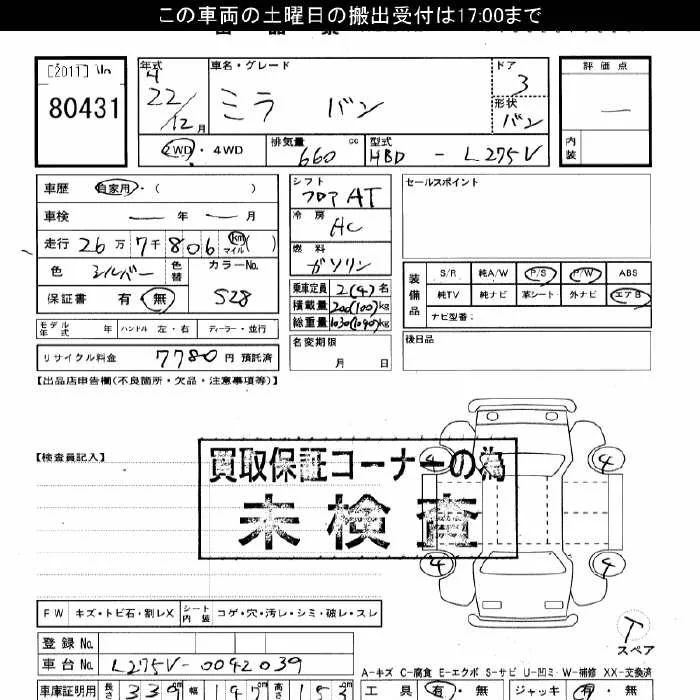 この車両の土曜日の搬出受付は17:00まで
[2011]
80431
年式 車名・グレード ドア 評価点
22/12月 ミラ バン 3 —
形状 バン
内装
2WD・4WD 排気量 660cc 型式 HBD - L275V
車歴 自家用・( )
シフト フロアAT
セールスポイント
車検 — 年 — 月
冷房 AC
走行 26万7千806 km マイル( )
燃料 ガソリン
色 シルバー 色替 カラーNo. S28
装備品 S/R 純A/W P/S P/W ABS
純TV 純ナビ 革シート 外ナビ エアB
ナビ型番:
保証書 有・無
乗車定員 2(4)名
積載量 200(100)kg
総重量 1030(1090)kg
モデル年式 年 ハンドル 左・右 ディーラー・並行
名変期限 月 日
後日品
リサイクル料金 7780円 預託済
【出品店申告欄(不良箇所・欠品・注意事項等)】
【検査員記入】
買取保証コーナーの為
未検査
4 4
4 4
FW キズ・トビ石・割レX シート内装 コゲ・穴・汚レ・シミ・破レ・スレ
T
スペア
登録No.
車台No. L275V-0042039
A-キズ C-腐食 E-エクボ S-サビ U-凹ミ W-補修 XX-交換済
車庫証明用 長さ 339 幅 147 高さ 工具 有・無 ジャッキ 有・無